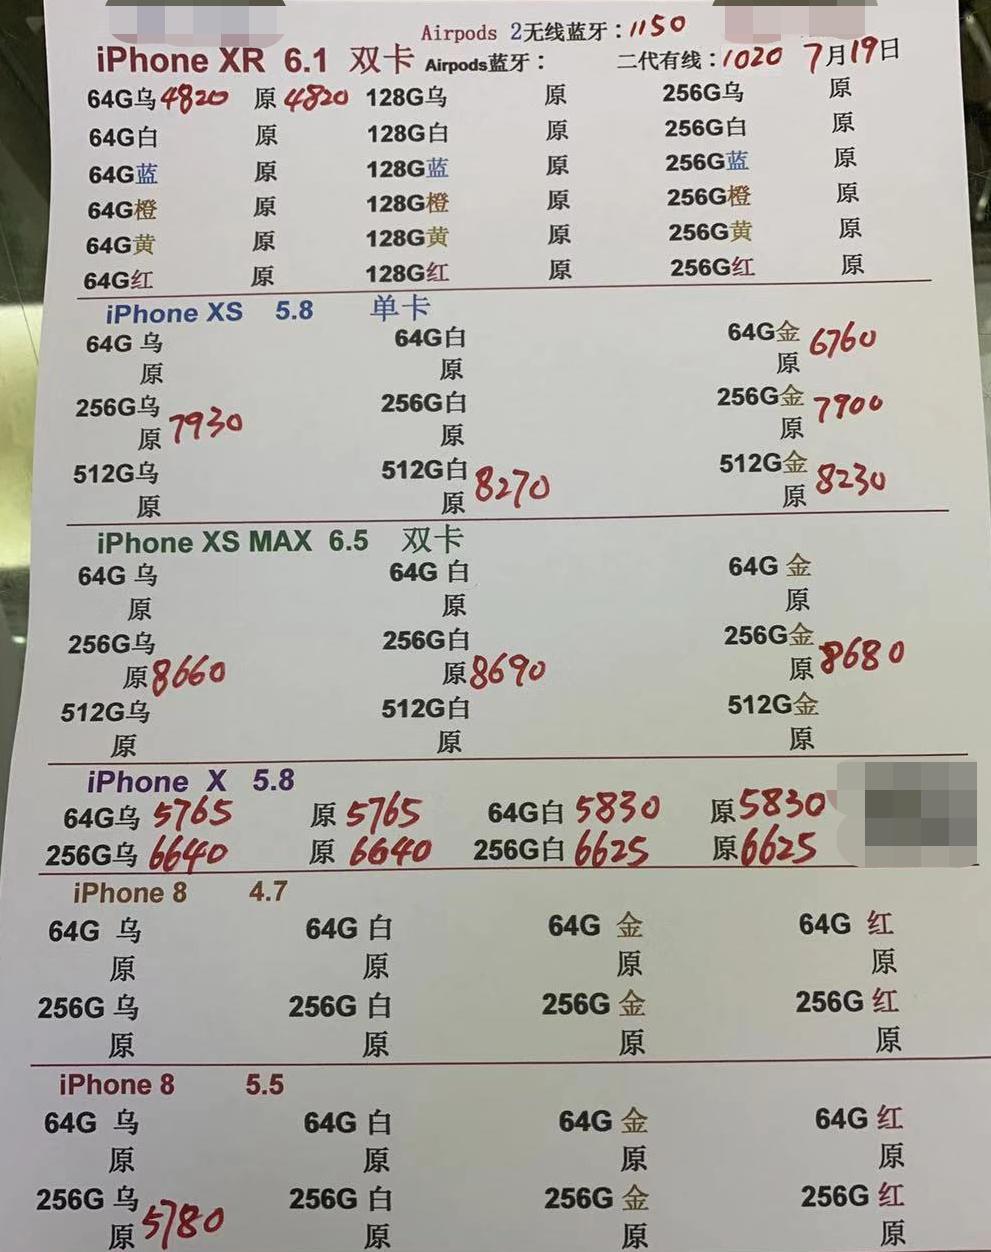 Airpods 2无线蓝牙：1150
iPhone XR 6.1 双卡 Airpods蓝牙： 二代有线：1020 7月19日
64G乌4820 原4820 128G乌 原 256G乌 原
64G白 原 128G白 原 256G白 原
64G蓝 原 128G蓝 原 256G蓝 原
64G橙 原 128G橙 原 256G橙 原
64G黄 原 128G黄 原 256G黄 原
64G红 原 128G红 原 256G红 原
iPhone XS 5.8 单卡
64G 乌 64G白 64G金 6760
原 原 原
256G乌 256G白 256G金 7900
原 7930 原 原
512G乌 512G白 512G金 8230
原 原 8270 原
iPhone XS MAX 6.5 双卡
64G 乌 64G 白 64G 金
原 原 原
256G乌 256G白 256G金
原8660 原8690 原8680
512G乌 512G白 512G金
原 原 原
iPhone X 5.8
64G乌 5765 原 5765 64G白 5830 原5830
256G乌 6640 原 6640 256G白 6625 原6625
iPhone 8 4.7
64G 乌 64G 白 64G 金 64G 红
原 原 原 原
256G 乌 256G 白 256G 金 256G 红
原 原 原 原
iPhone 8 5.5
64G 乌 64G 白 64G 金 64G 红
原 原 原 原
256G 乌 256G 白 256G 金 256G 红
原5780 原 原 原